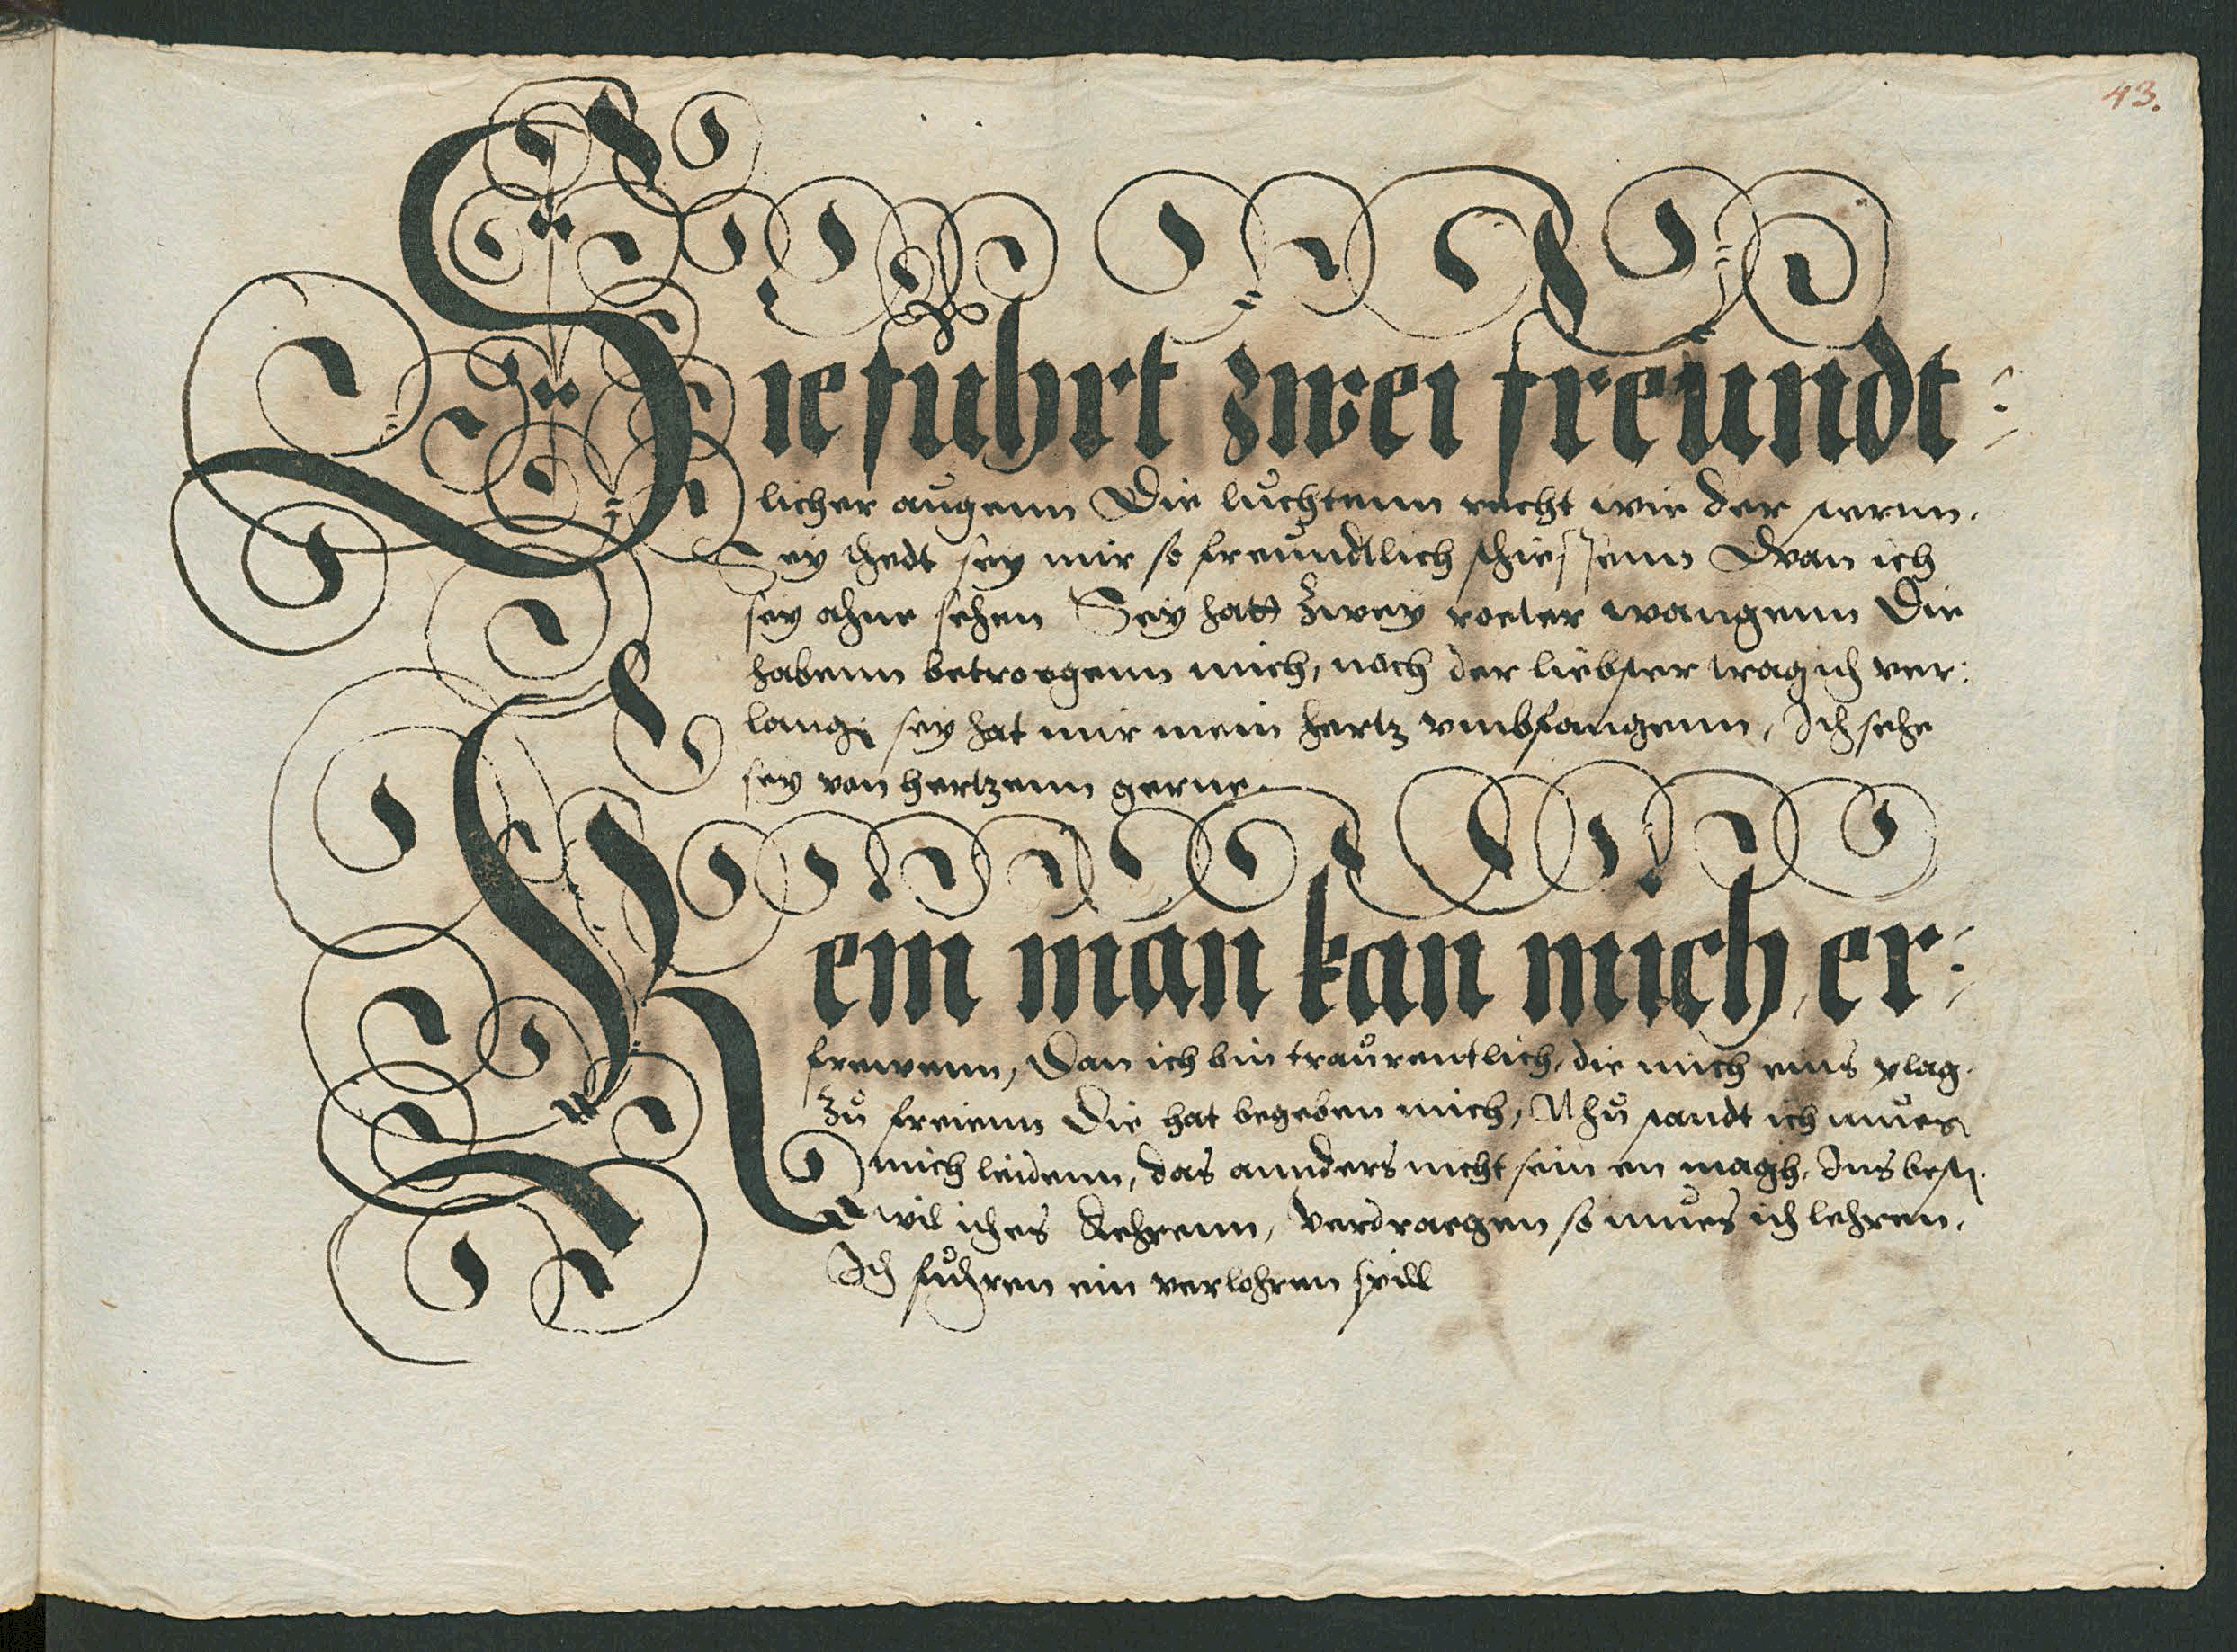 43.
Sie fuhrt zwei freundt:
licher augenn Die luchtenn recht wie der
Sey thedt sey mir so freundtlich schiessenn Dwan ich
sey ahne sehen Sey hatt zwey roeter wangenn Die
habenn betroegenn mich, nach der liebster trag ich ver:
lang, sey hat mir mein hertz umbfangenn, Ich sehe
sey von hertzenn gerne.
Kein man kan mich er:
frewenn, Dan ich bin traurentlich, die mich eins plag.
Zu freienn Die hat begeben mich, Nhu ich mues
mich leidenn, das annders nicht sein en magh, Ins best.
wil iches kehrenn, verdraegen so mues ich lehren,
Ich fuhren ein verlohren spill